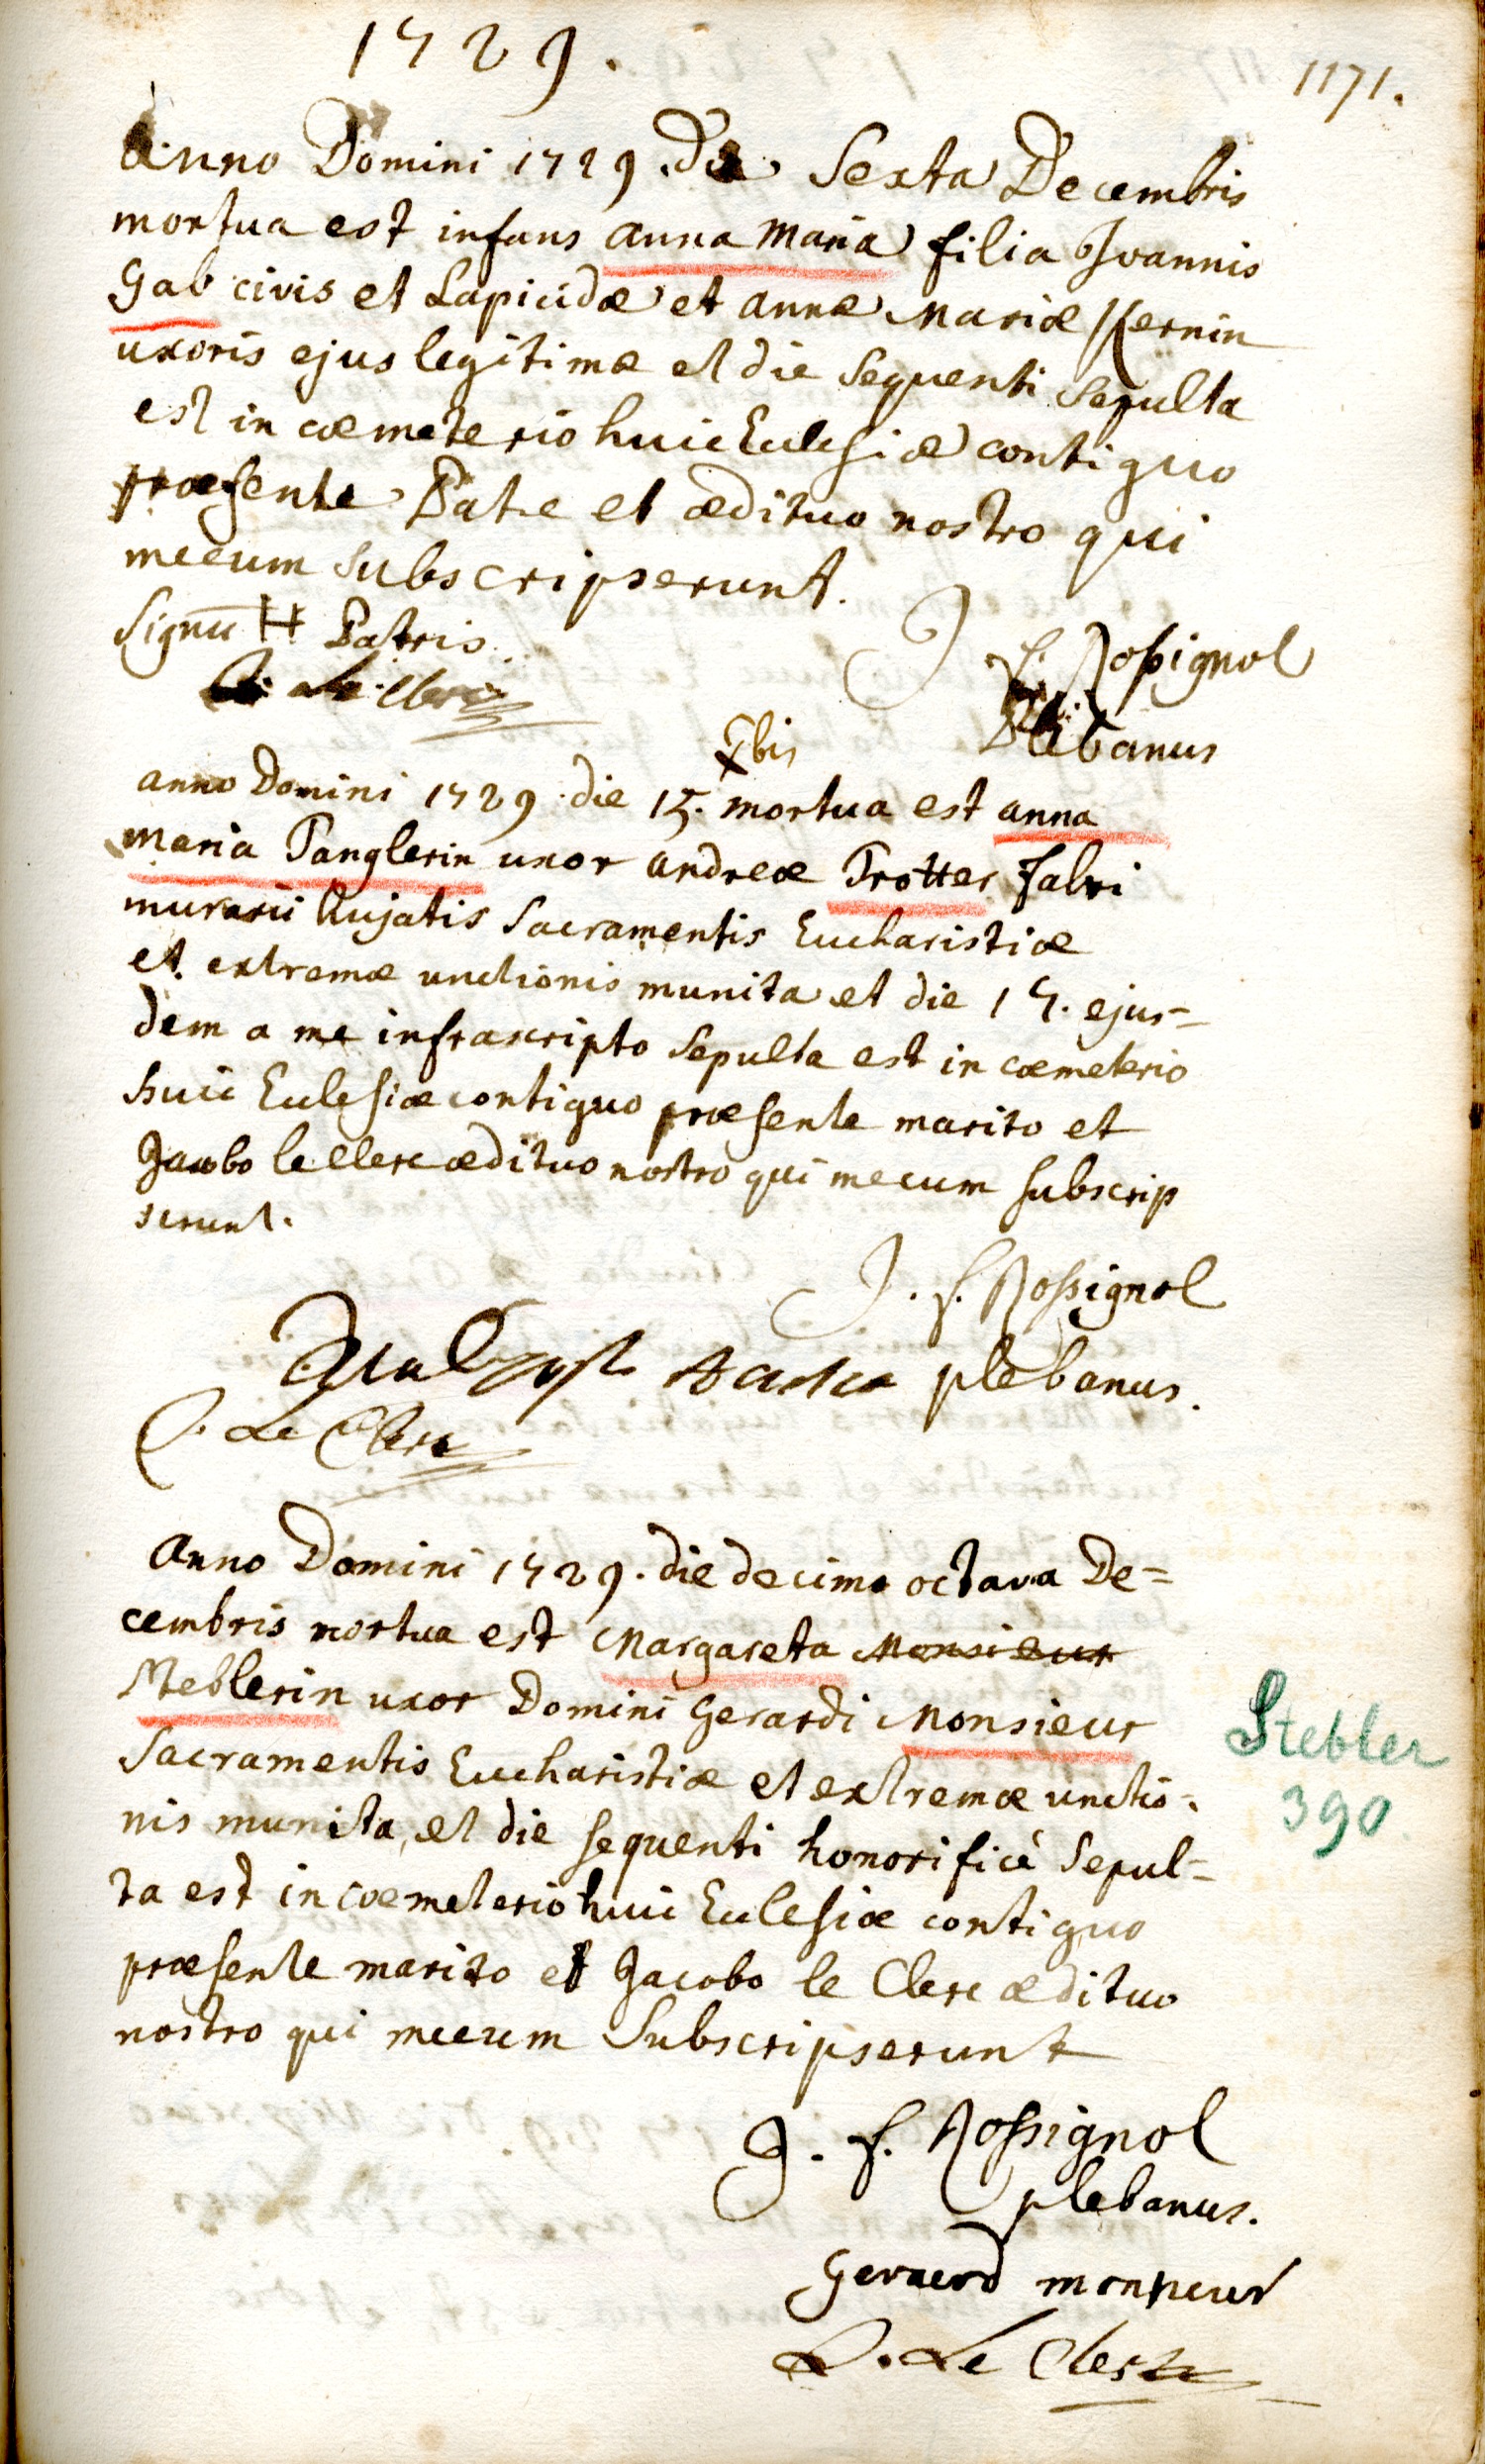 1729.
1171.
Anno Domini 1729. die Sexta Decembris
mortua est infans anna Maria filia Joannis
Gab civis et Lapicidæ et annæ Mariæ Kernin
uxoris ejus legitimæ et die sequenti sepulta
est in cœmeterio huic Ecclesiæ contiguo
præsente Patre et ædituo nostro qui
mecum subscripserunt.
Signū H Patris
J. f. Rossignol
Le Clerc
Plebanus
Xbis
anno Domini 1729 die 15. mortua est anna
Maria Panglerin uxor andreæ Trotter Fabri
murarii hujatis Sacramentis Eucharistiæ
et extremæ unctionis munita et die 17. ejus=
dem a me infrascripto sepulta est in cœmeterio
huic Ecclesiæ contiguo præsente marito et
Jacobo le Clerc ædituo nostro qui mecum subscrip
serunt.
J. f. Rossignol
plebanus.
J. Le Clerc
Anno Domini 1729. die decima octava De=
cembris mortua est Margareta Monsieur
Steblerin uxor Domini Gerardi Monsieur
Sacramentis Eucharistiæ et extremæ unctio-
nis munita, et die sequenti honorificè Sepul=
ta est in cœmeterio huic Ecclesiæ contiguo
præsente marito et Jacobo le Clerc ædituo
nostro qui mecum Subscripserunt
Stebler
390
J. f. Rossignol
plebanus.
Gerard monsieur
J. Le Clerc